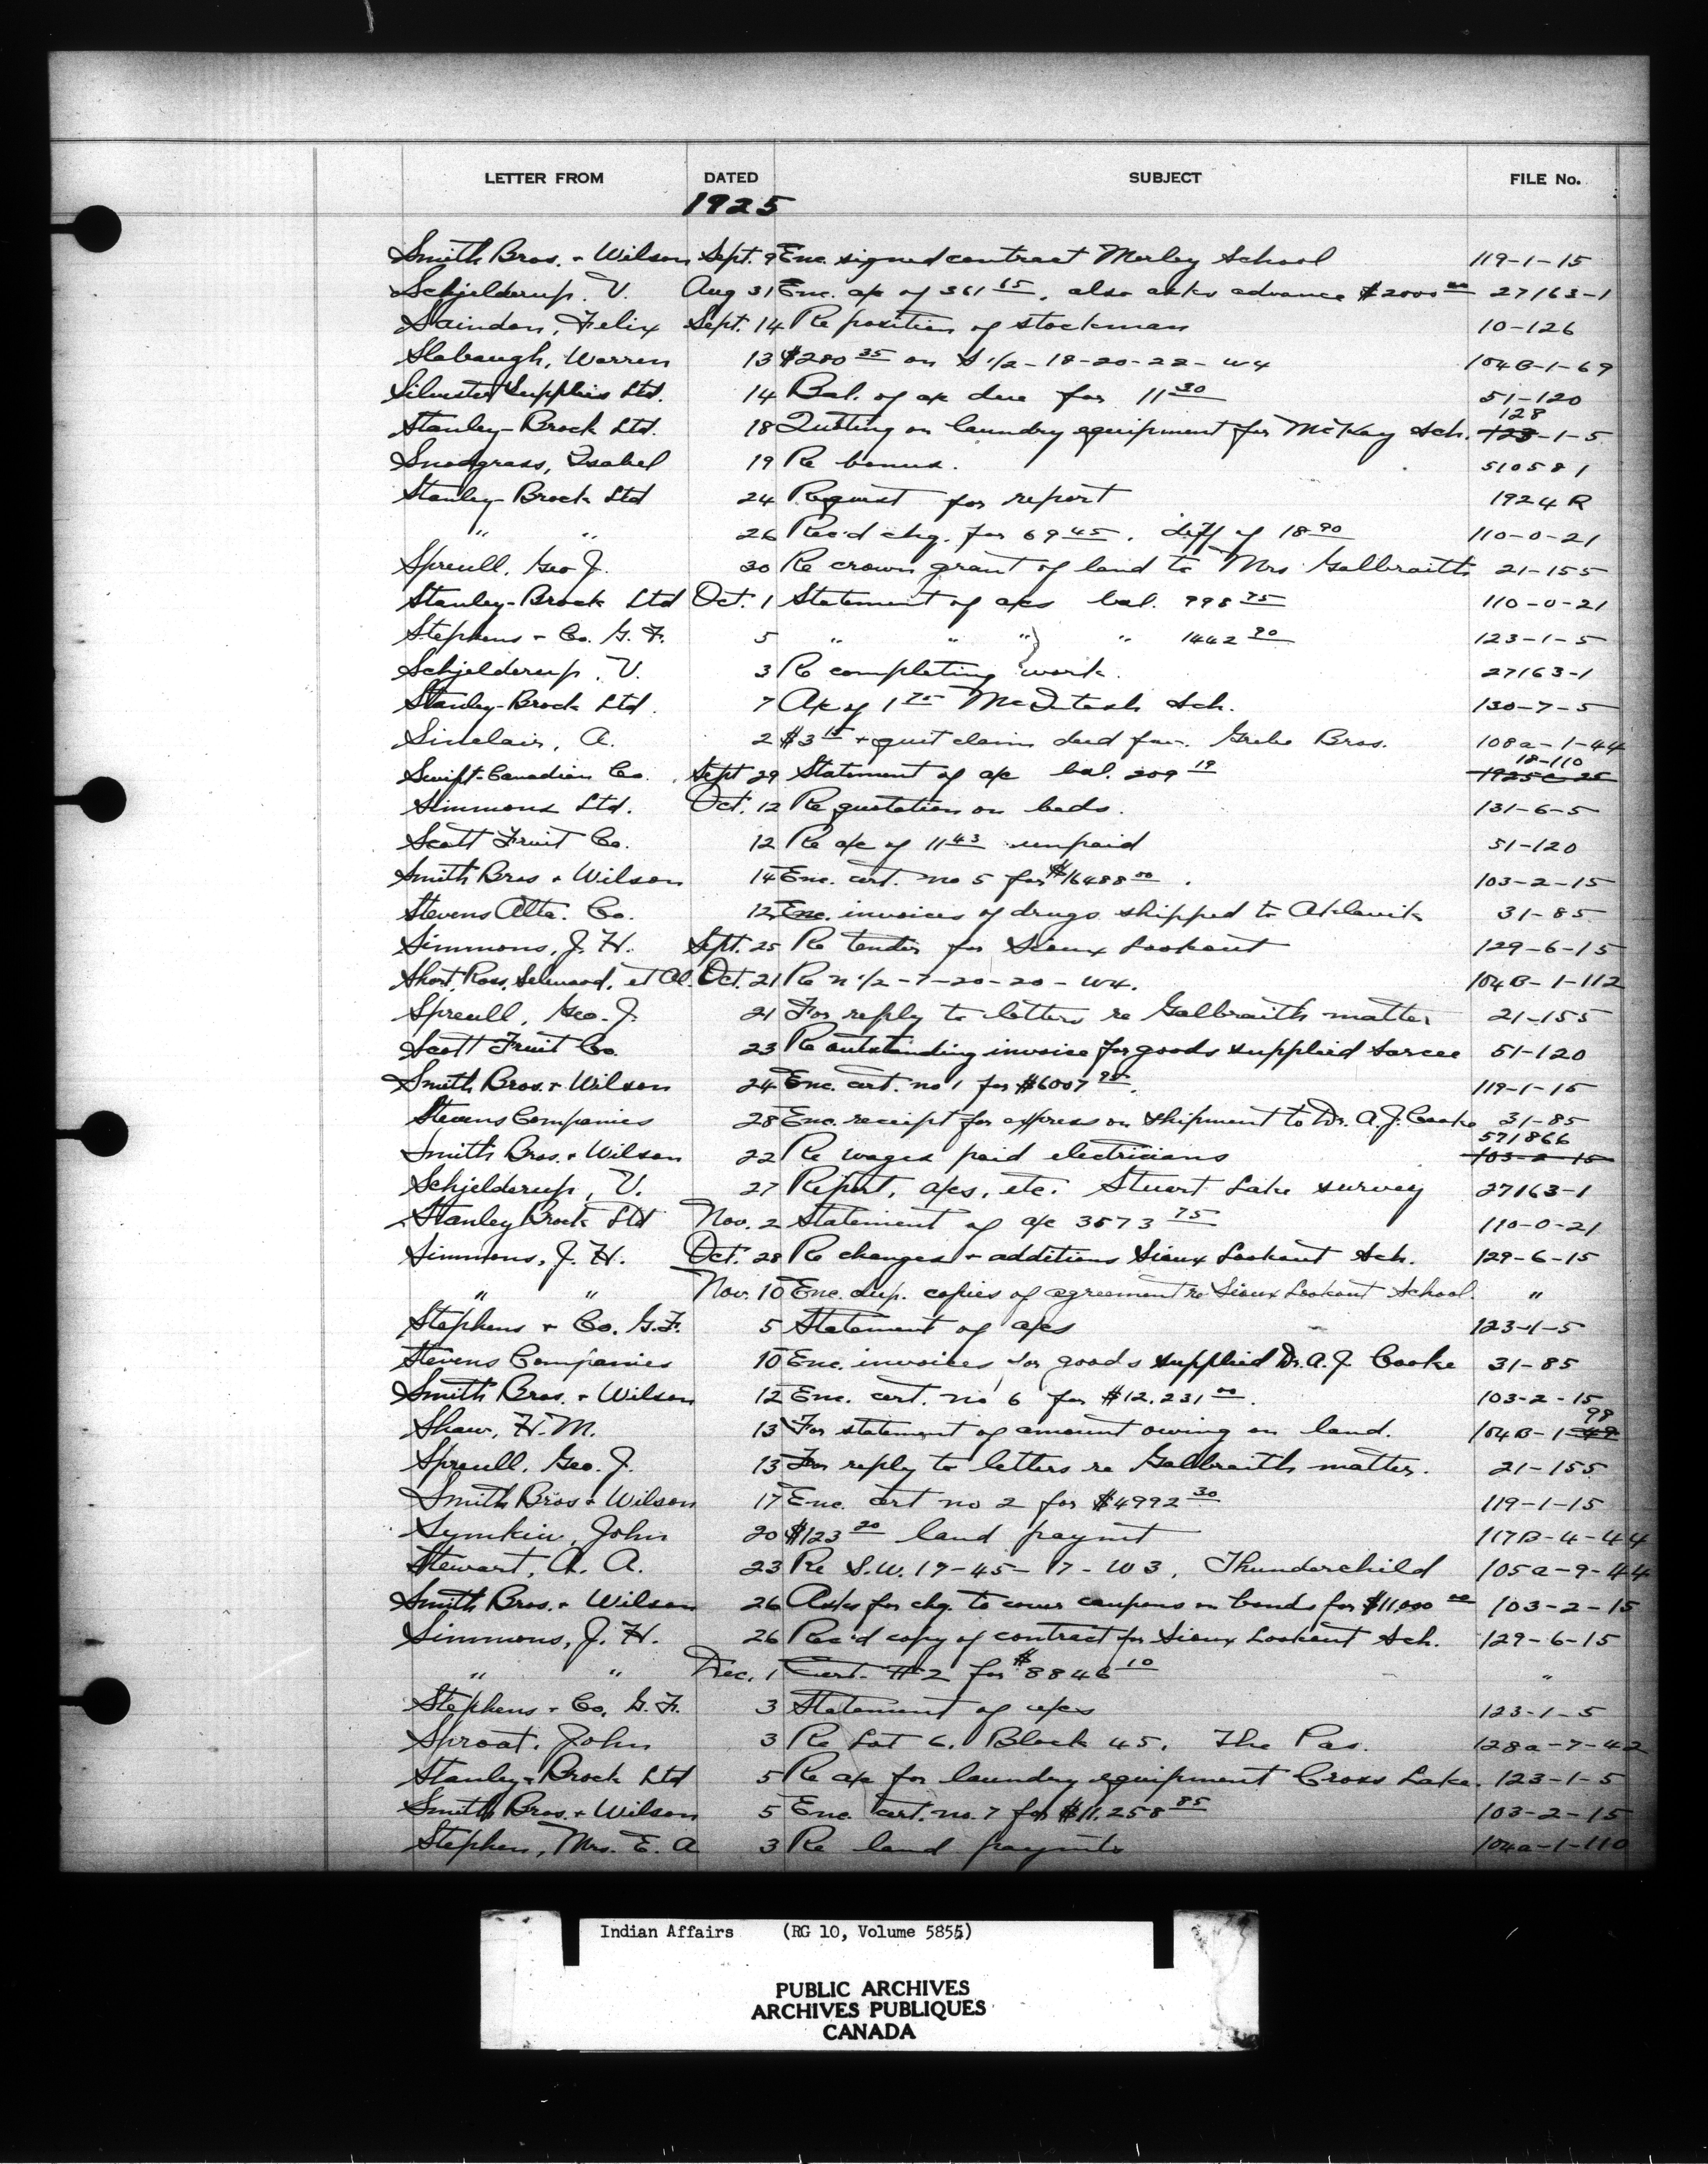 LETTER FROM DATED SUBJECT FILE No.
1925
Smith Bros. + Wilson Sept. 9 Enc. signed contract Morley School 119-1-15
Schjelderup, V. Aug 31 Enc. a/c of 361 65, also asks advance $2000 00 27163-1
Saindon, Felix Sept. 14 Re position of stockman 10-126
Slabaugh, Warren 13 $280 35 on S 1/2-18-20-22-W4 104B-1-69
Silvester Supplies Ltd. 14 Bal. of a/c due for 11 30 51-120
Stanley-Brock Ltd. 18 Quoting on laundry equipment for McKay Sch. 128 -1-5
Snodgrass, Isabel 19 Re bonus. 510581
Stanley-Brock Ltd 24 Request for report 1924 R
" " 26 Rec'd chq. for 69 45. diff of 18 90 110-0-21
Spreull, Geo J. 30 Re crown grant of land to Mrs Galbraith 21-155
Stanley-Brock Ltd Oct. 1 Statement of a/cs bal. 998 75 110-0-21
Stephens + Co. G. F. 5 " " " " 1442 90 123-1-5
Schjelderup, V. 3 Re completing work. 27163-1
Stanley-Brock Ltd. 7 A/c of 1 75 McIntosh Sch. 130-7-5
Sinclair, A. 2 $3 15 + quit claim deed fav. Grebe Bros. 108a-1-44
Swift-Canadian Co. Sept 29 Statement of a/c bal. 209 19 18-110
Simmons Ltd. Oct. 12 Re quotation on beds. 131-6-5
Scott Fruit Co. 12 Re a/c of 11 43 unpaid 51-120
Smith Bros + Wilson 14 Enc. cert. no 5 for $16488 00. 103-2-15
Stevens Alta. Co. 12 Enc. invoices of drugs shipped to Aklavik 31-85
Simmons, J. H. Sept. 25 Re tender for Sioux Lookout 129-6-15
Short, Ross, Selwood, et Al. Oct. 21 Re n 1/2-7-20-20-W4. 104B-1-112
Spreull, Geo. J. 21 For reply to letters re Galbraith matter 21-155
Scott Fruit Co. 23 Re outstanding invoice for goods supplied Sarcee 51-120
Smith Bros. + Wilson 24 Enc. cert. no 1 for $6007 95. 119-1-15
Stevens Companies 28 Enc. receipt for express on shipment to Dr. A. J. Cooke 31-85
Smith Bros. + Wilson 22 Re wages paid electricians 571866 103-2-15
Schjelderup, V. 27 Report, a/cs, etc. Stuart Lake survey 27163-1
Stanley Brock Ltd Nov. 2 Statement of a/c 3573 75 110-0-21
Simmons, J. H. Oct. 28 Re changes + additions Sioux Lookout Sch. 129-6-15
" " Nov. 10 Enc. dup. copies of agreement re Sioux Lookout School. "
Stephens + Co. G.F. 5 Statement of a/cs 123-1-5
Stevens Companies 10 Enc. invoices for goods supplied Dr. A. J. Cooke 31-85
Smith Bros. + Wilson 12 Enc. cert. no 6 for $12,231 00. 103-2-15
Shaw, H. M. 13 For statement of amount owing on land. 104B-1- 98
Spreull, Geo. J. 13 For reply to letters re Galbraith matter. 21-155
Smith Bros + Wilson 17 Enc. cert no 2 for $4992 30 119-1-15
Symkiw, John 20 $123 20 land paymt 117B-4-44
Stewart, A. A. 23 Re S.W. 19-45-17-W3, Thunderchild 105a-9-44
Smith Bros. + Wilson 26 Asks for chq. to cover coupons on bonds for $11,000 00 103-2-15
Simmons, J. H. 26 Rec'd copy of contract for Sioux Lookout Sch. 129-6-15
" " Dec. 1 Cert. #2 for $8846 10 "
Stephens + Co, G. F. 3 Statement of a/cs 123-1-5
Sproat, John 3 Re Lot 6, Block 45, The Pas. 128a-7-42
Stanley-Brock Ltd 5 Re a/c for laundry equipment Cross Lake. 123-1-5
Smith Bros. + Wilson 5 Enc. cert. no. 7 for $11,258 85 103-2-15
Stephen, Mrs. E. A 3 Re land paymts 104a-1-110
Indian Affairs (RG 10, Volume 5855)
PUBLIC ARCHIVES
ARCHIVES PUBLIQUES
CANADA